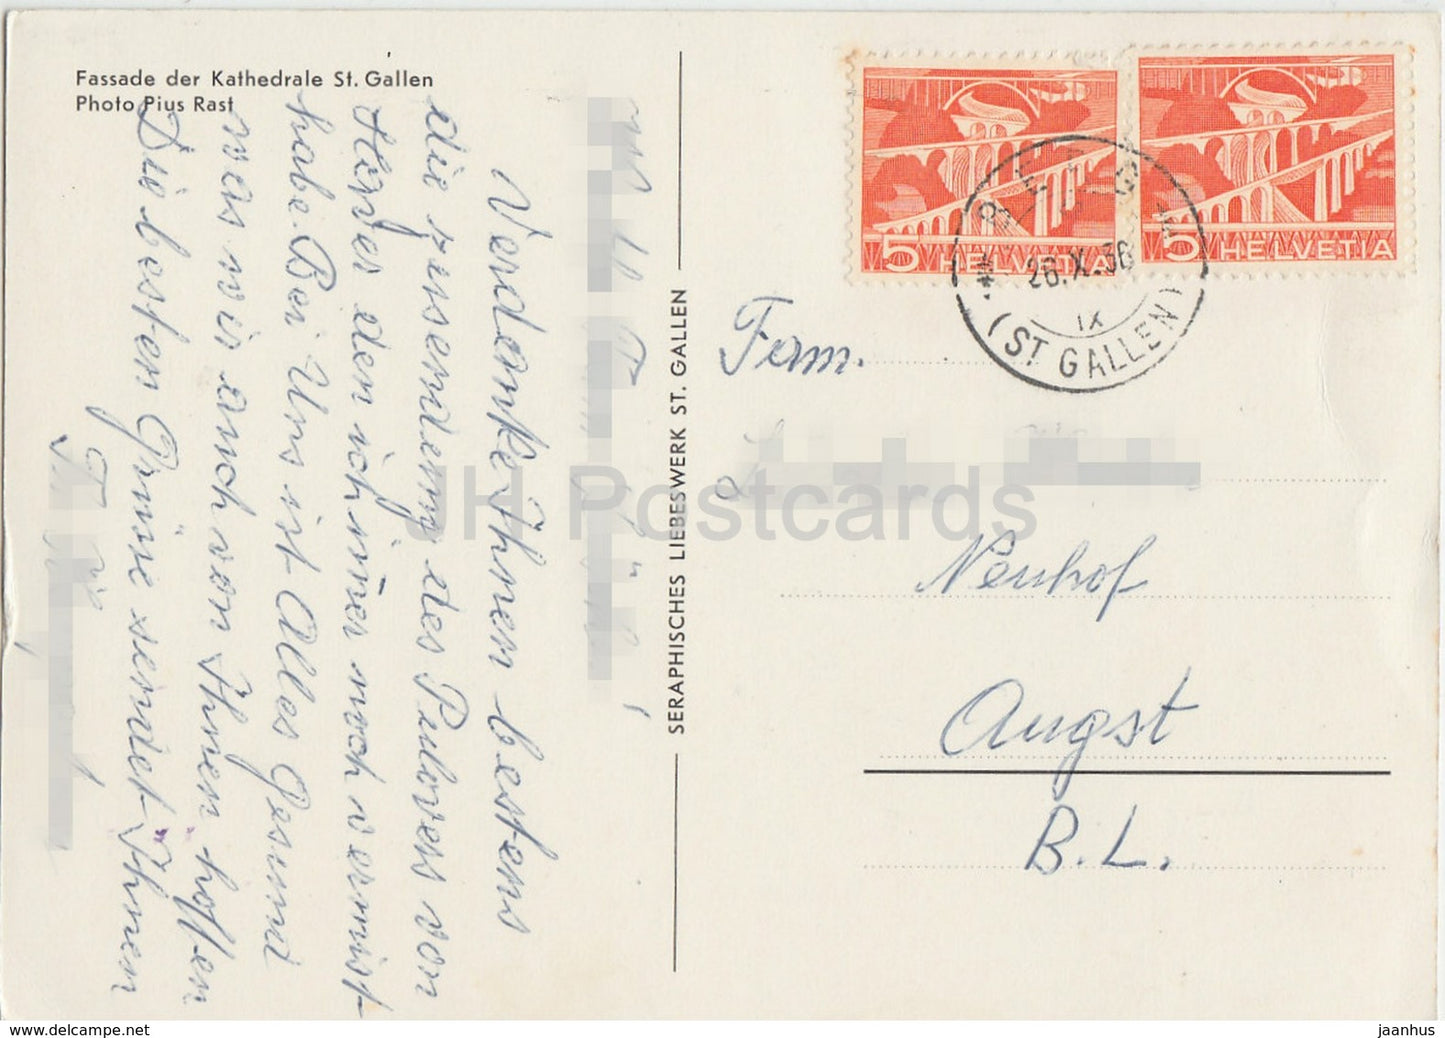 Fassade der Kathedrale St. Gallen
Photo Pius Rast
Verdanke Ihnen bestens
die zusendung des Pulovers von
den ich immer noch vermist
habe. Bei Uns ist Alles Gesund
was wir auch von Ihnen hoffen
Die besten Grüsse sendet Ihnen
SERAPHISCHES LIEBESWERK ST. GALLEN
5 HELVETIA
5 HELVETIA
26.X.
IX
(ST GALLEN)
Fam.
Neuhof
Augst
B.L.
JH Postcards
www.ebay.com
jaanhus